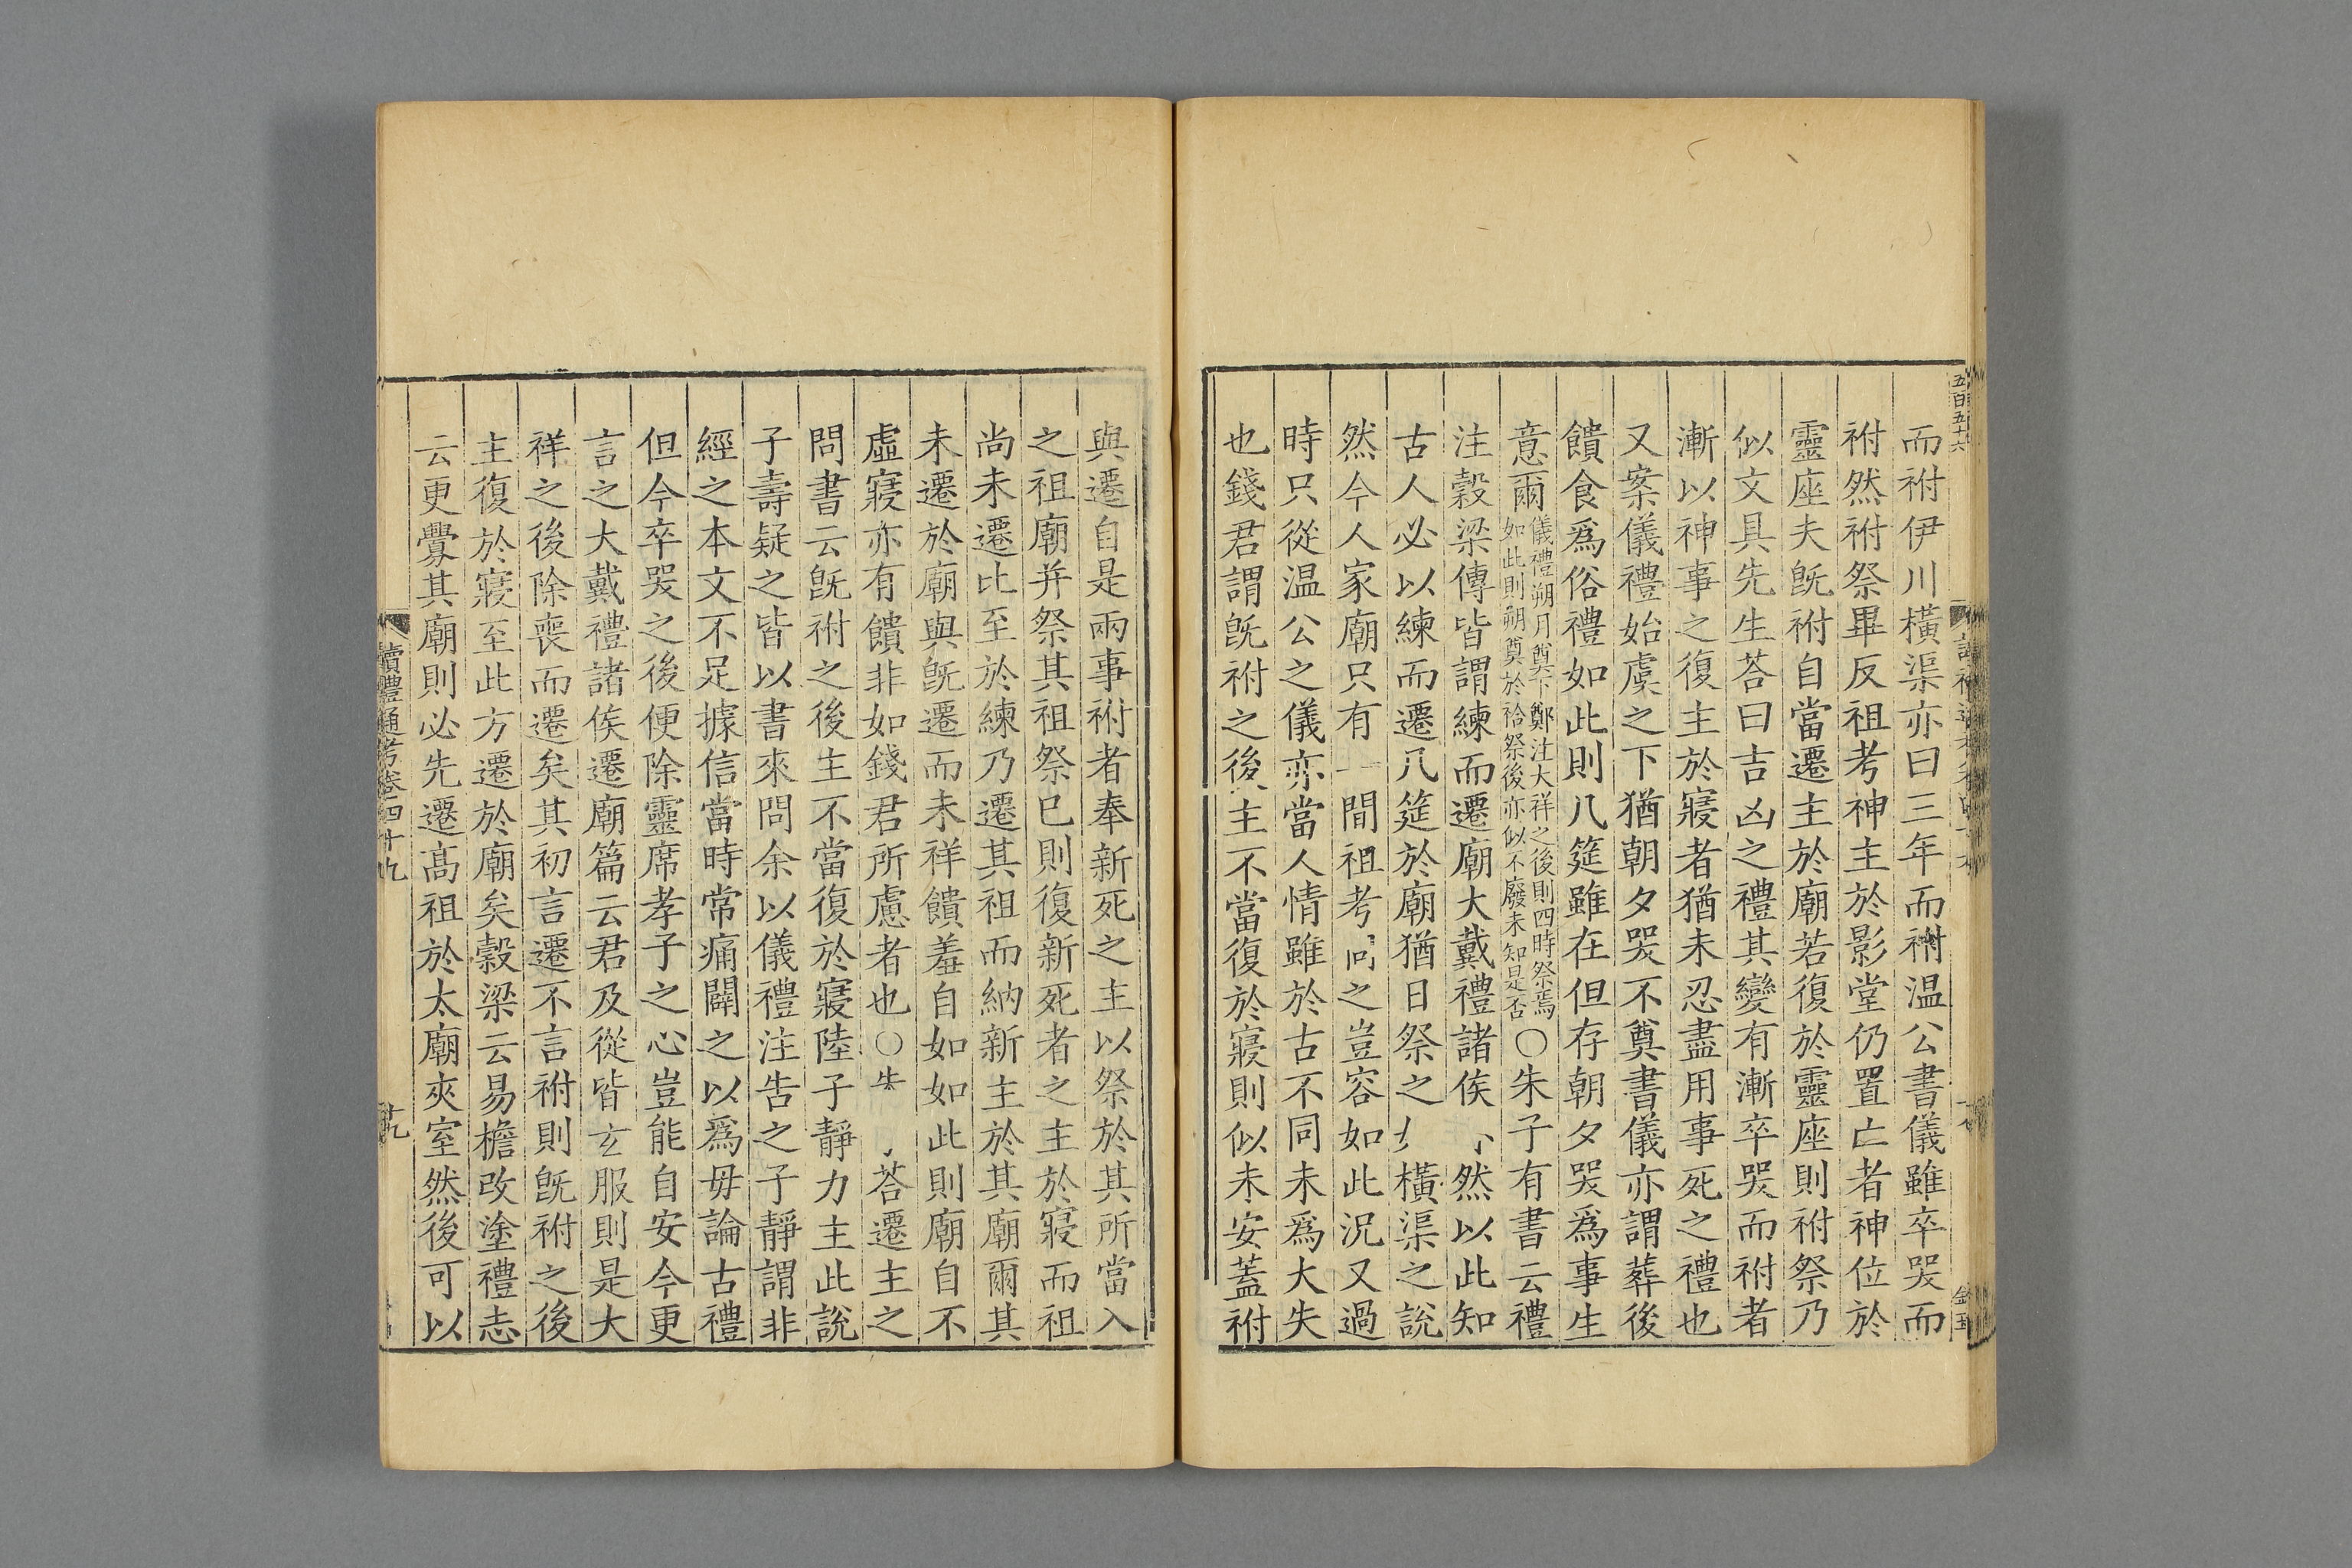 五百五十六
而祔伊川橫渠亦曰三年而祔温公書儀雖卒哭而
祔然祔祭畢反祖考神主於影堂仍置亡者神位於
靈座夫旣祔自當遷主於廟若復於靈座則祔祭乃
似文具先生荅曰吉凶之禮其變有漸卒哭而祔者
漸以神事之復主於寢者猶未忍盡用事死之禮也
又案儀禮始虞之下猶朝夕哭不奠書儀亦謂葬後
饋食爲俗禮如此則几筵雖在但存朝夕哭爲事生
意爾儀禮朔月奠下鄭注大祥之後則四時祭焉如此則朔奠於祫祭後亦似不廢未知是否〇朱子有書云禮
注穀梁傳皆謂練而遷廟大戴禮諸侯然以此知
古人必以練而遷凡筵於廟猶日祭之橫渠之說
然今人家廟只有一間祖考同之豈容如此況又過
時只從温公之儀亦當人情雖於古不同未爲大失
也錢君謂旣祔之後主不當復於寢則似未安蓋祔
與遷自是兩事祔者奉新死之主以祭於其所當入
之祖廟并祭其祖祭已則復新死者之主於寢而祖
尚未遷比至於練乃遷其祖而納新主於其廟爾其
未遷於廟與旣遷而未祥饋羞自如如此則廟自不
虛寢亦有饋非如錢君所慮者也〇朱荅遷主之
問書云旣祔之後主不當復於寢陸子靜力主此說
子壽疑之皆以書來問余以儀禮注告之子靜謂非
經之本文不足據信當時常痛闢之以爲毋論古禮
但今卒哭之後便除靈席孝子之心豈能自安今更
言之大戴禮諸侯遷廟篇云君及從皆玄服則是大
祥之後除喪而遷矣其初言遷不言祔則旣祔之後
主復於寢至此方遷於廟矣穀梁云易檐改塗禮志
云更釁其廟則必先遷高祖於太廟夾室然後可以
讀禮通考卷四十九
十九